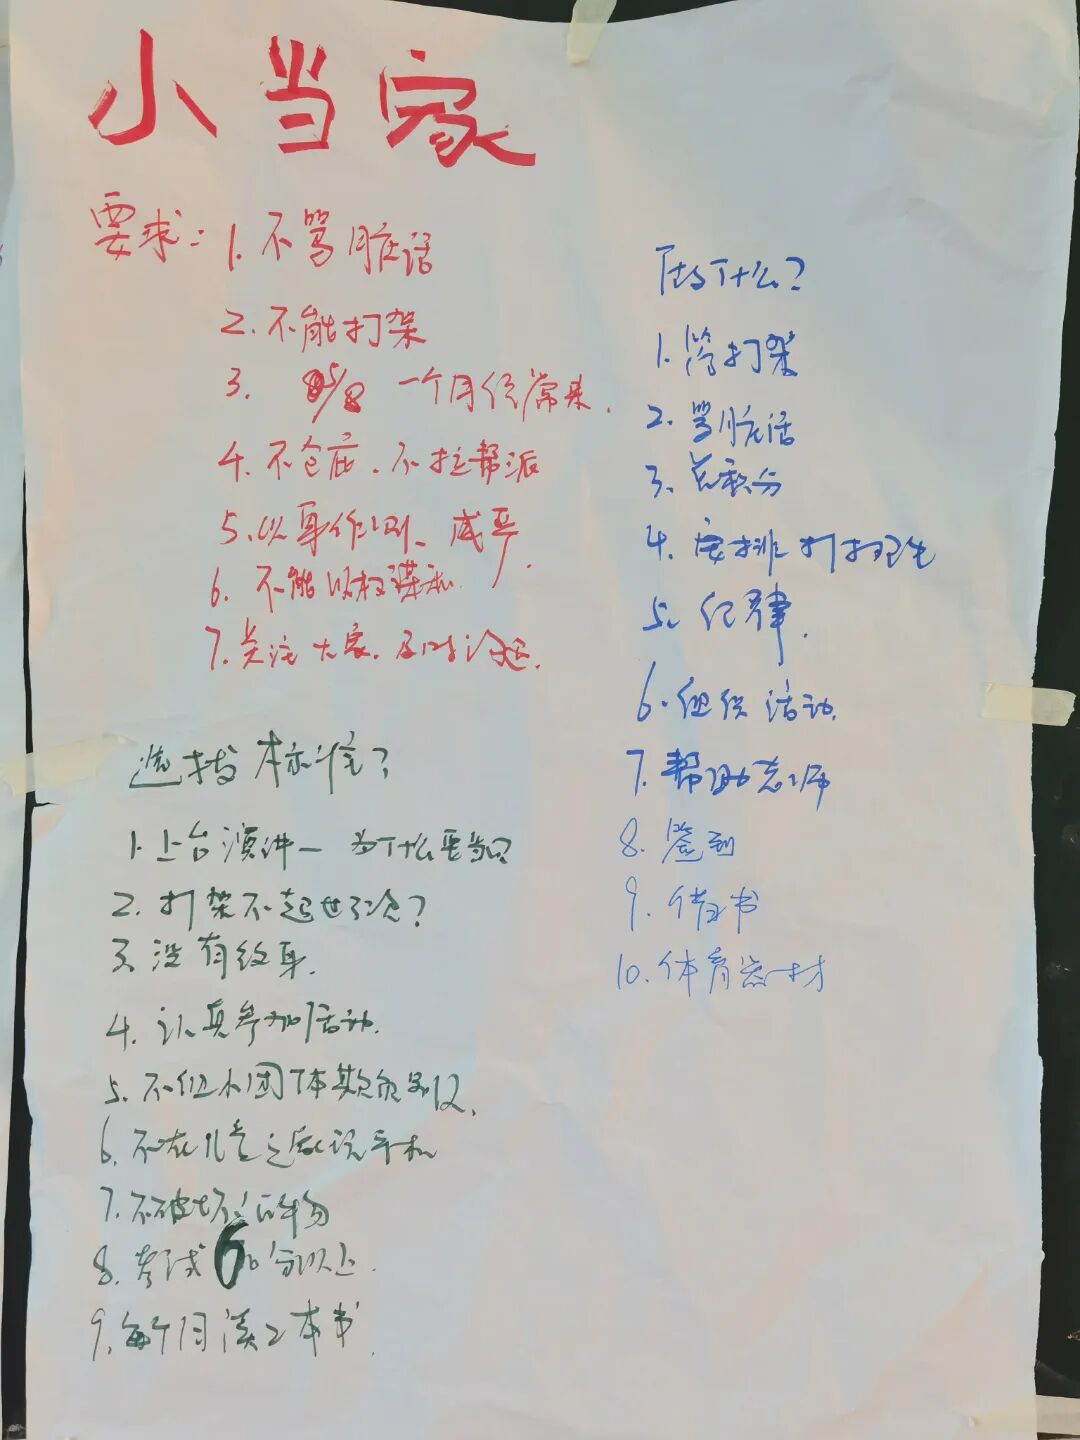 小当家
要求:
1. 不骂脏话
2. 不能打架
3. 5/8 一个月经常来.
4. 不包庇、不拉帮派
5. 以身作则、威严.
6. 不能以权谋私.
7. 关注大家.及时
选拔标准?
1. 上台演讲— 为什么要当?
2. 打架不起
3. 没有纹身.
4. 认真参加活动.
5. 不组小团体欺负
6. 不在儿童之家玩手机
7. 不破坏公物
8. 考试60分以上.
9. 每个月读2本书.
干什么?
1. 管打架
2. 骂脏话
3. 总积分
4. 安排打扫卫生
5. 纪律.
6. 组织活动.
7. 帮助老师
8. 签到
9. 借书
10. 体育器材